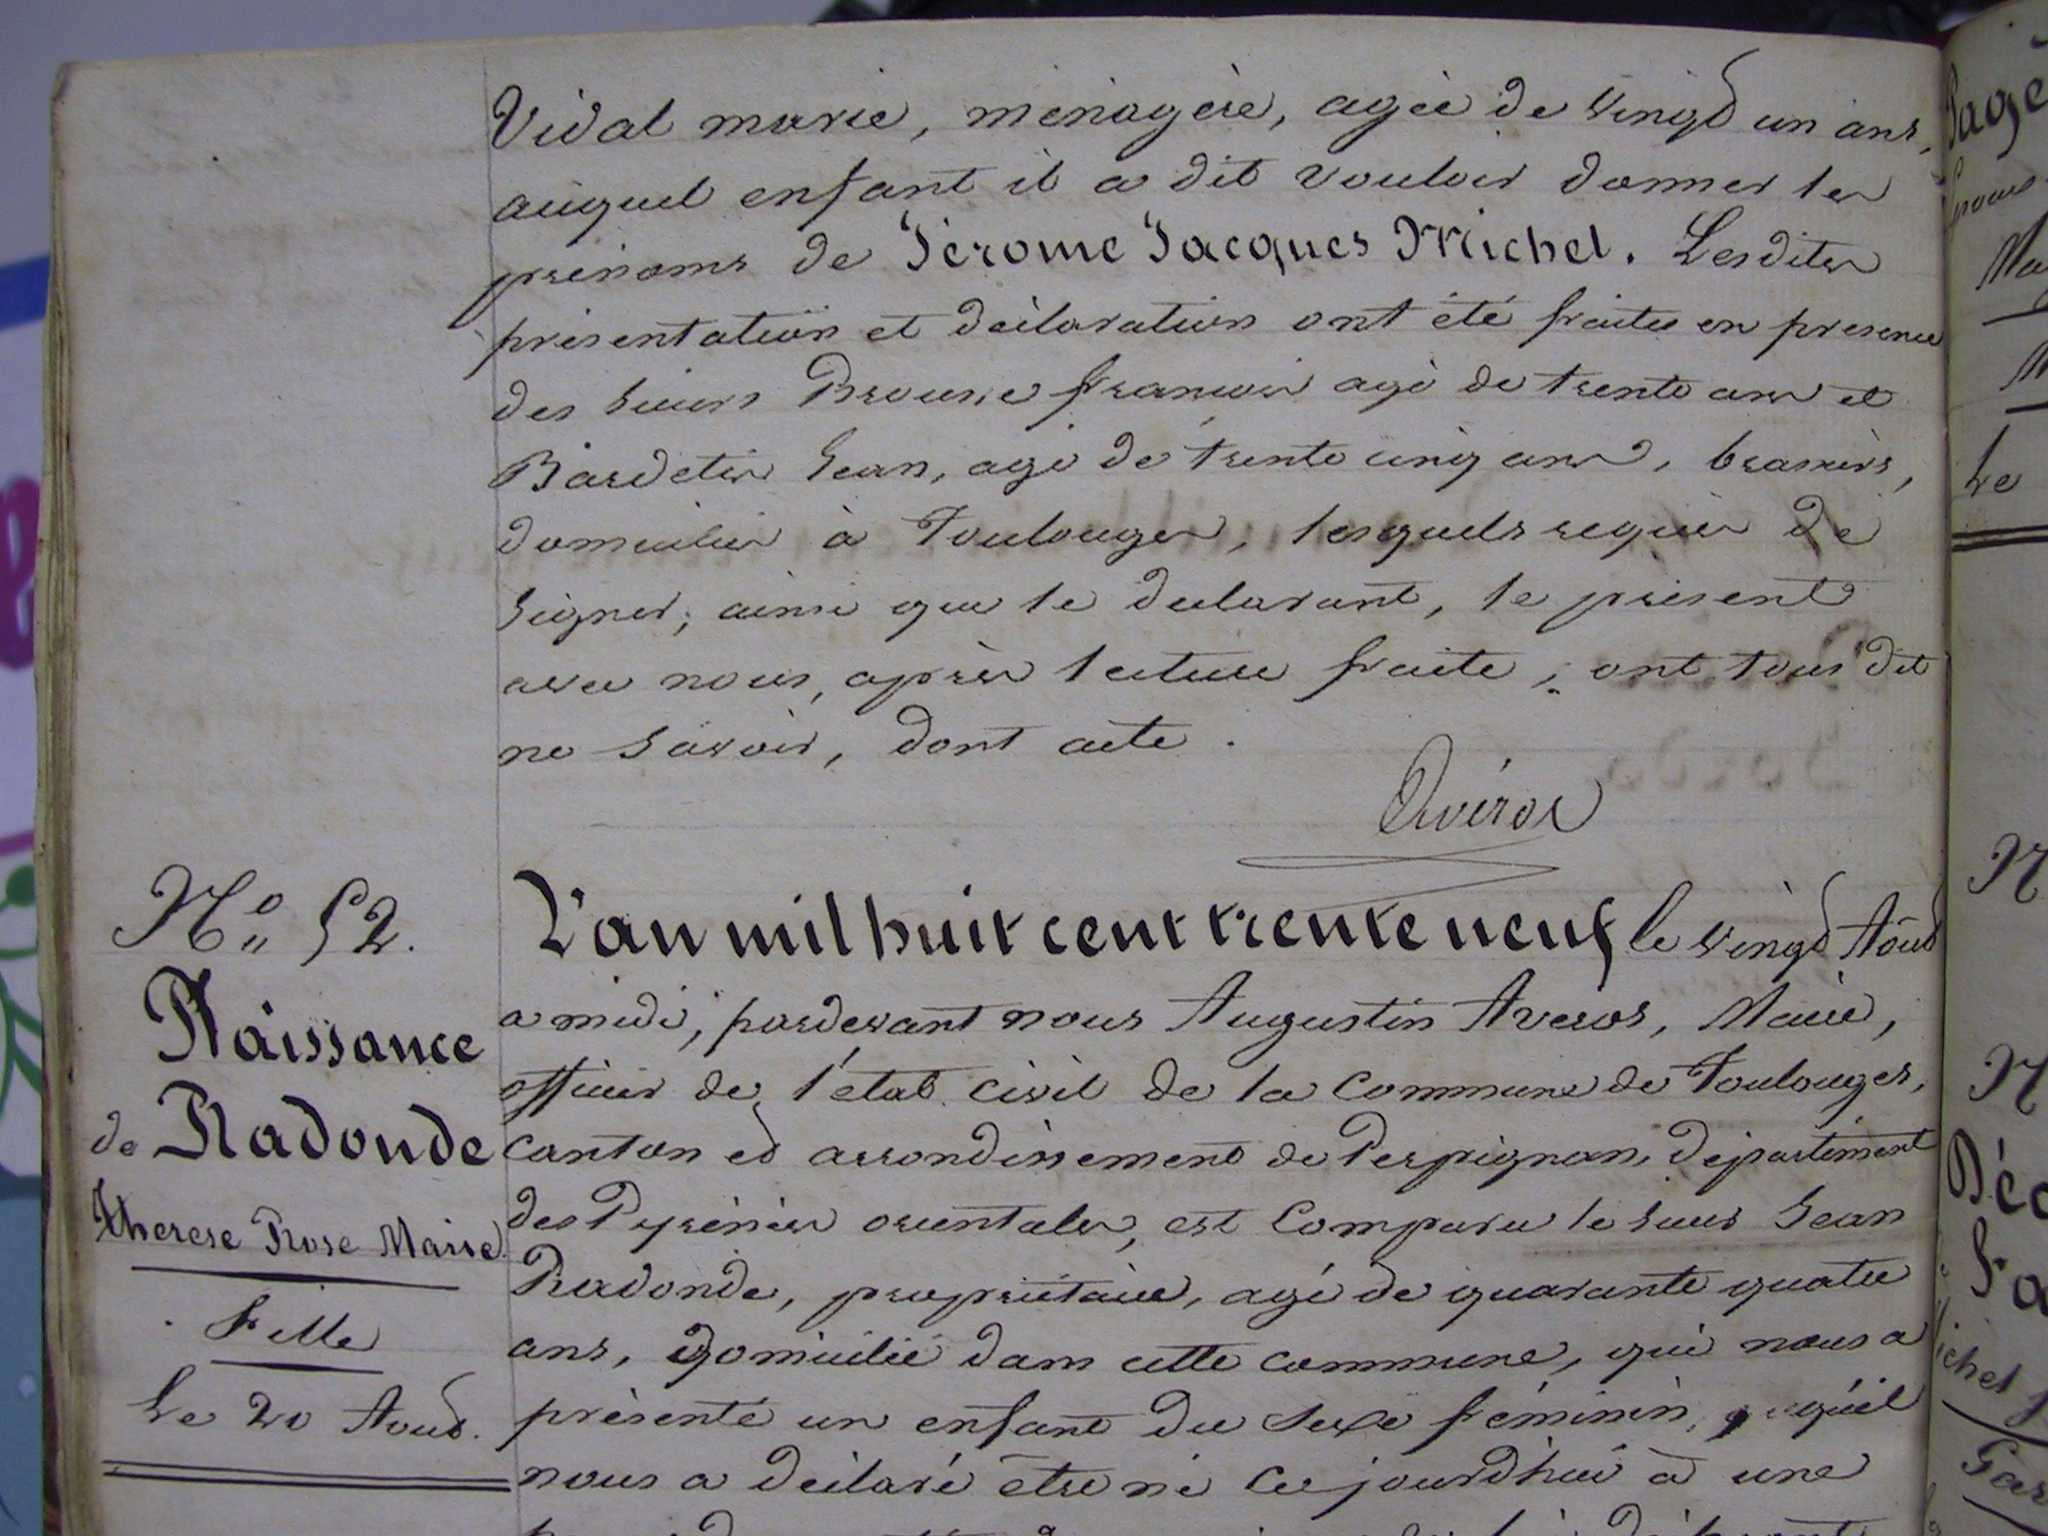 Vidal marie, menagère, agée de vingt un ans,
auquel enfant il a dit vouloir donner les
prénoms de Jérome Jacques Michel. Lesdites
présentation et déclaration ont été faites en presence
des sieurs francois agé de trente ans et
Jean, agé de trente cinq ans, brassiers,
domiciliés à Toulouges, lesquels requis de
signer, ainsi que le declarant, le présent
avec nous, après lecture faite, ont tous dit
ne savoir, dont acte.
Avéros
No 52.
Naissance
de Radonde
Therese Rose Marie
Fille
Le 20 Aout.
L'an mil huit cent trente neuf le vingt Août
a midi, pardevant nous Augustin Averos, Maire,
officier de l'état civil de la Commune de Toulouges,
Canton et arrondissement de Perpignan, département
des Pyrénées orientales, est Comparu le sieur Jean
Radonde, propriétaire, agé de quarante quatre
ans, domicilié dans cette commune, qui nous a
présenté un enfant du sexe féminin, qu'il
nous a déclaré être né cejourd'hui à une
Page
Le
N
N
Déc